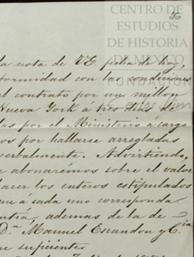 CENTRO DE
ESTUDIOS
DE HISTORIA
la nota de VE
formidad con la
el contrato por un millon
Nueva York á tres dias
tas por el Ministerio á cargo
vos por hallarse arregladas
verbalmente. Advirtiendo,
abonaremos sobre el valor
hacer los enteros estipulados
que a cada uno corresponda
ademas de la de
D. Manuel Escandon y Cia
suficiente